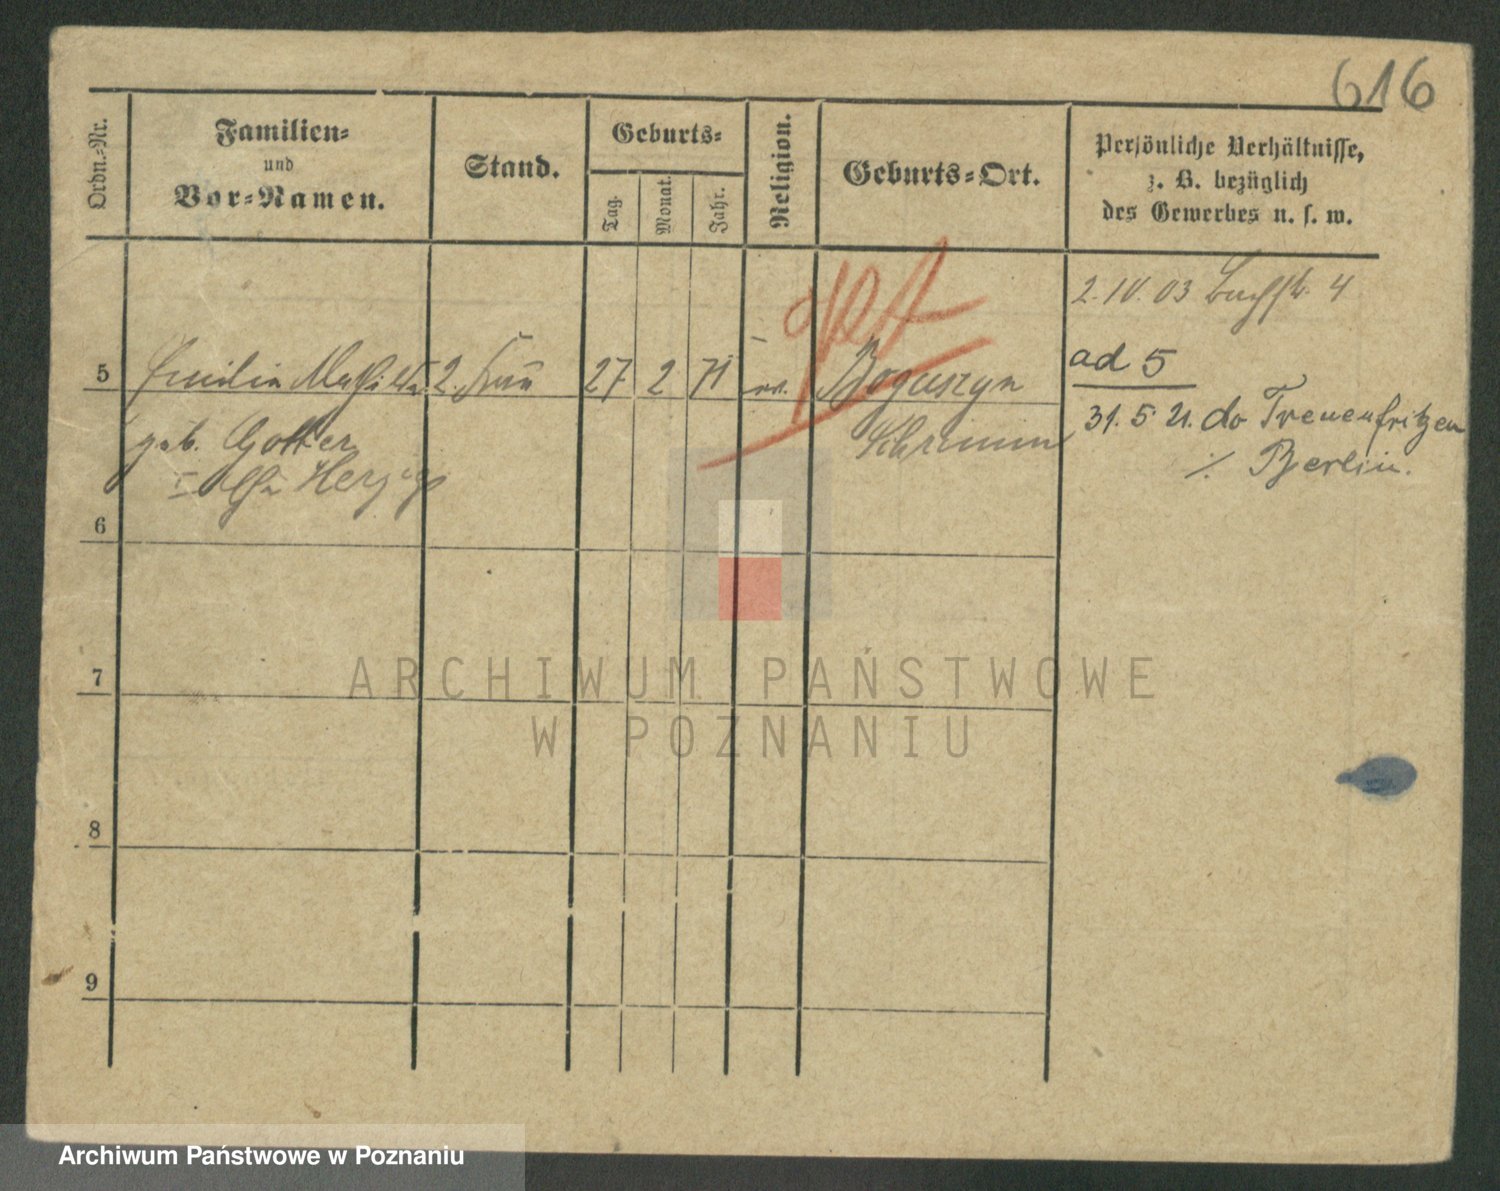 616
Ordn.-Nr.
Familien-
und
Vor-Namen.
Stand.
Geburts-
Tag.
Monat.
Jahr.
Religion.
Geburts-Ort.
Persönliche Verhältnisse,
z. B. bezüglich
des Gewerbes u. s. w.
2. IV. 03 4
5
2. Frau
27
2
71
ev.
Boguszyn
Schrimm
geb. Gotter
Herzog
ad 5
31. 5. 21. do Treuenfritzen
Berlin.
6
7
8
9
ARCHIWUM PAŃSTWOWE
W POZNANIU
Archiwum Państwowe w Poznaniu